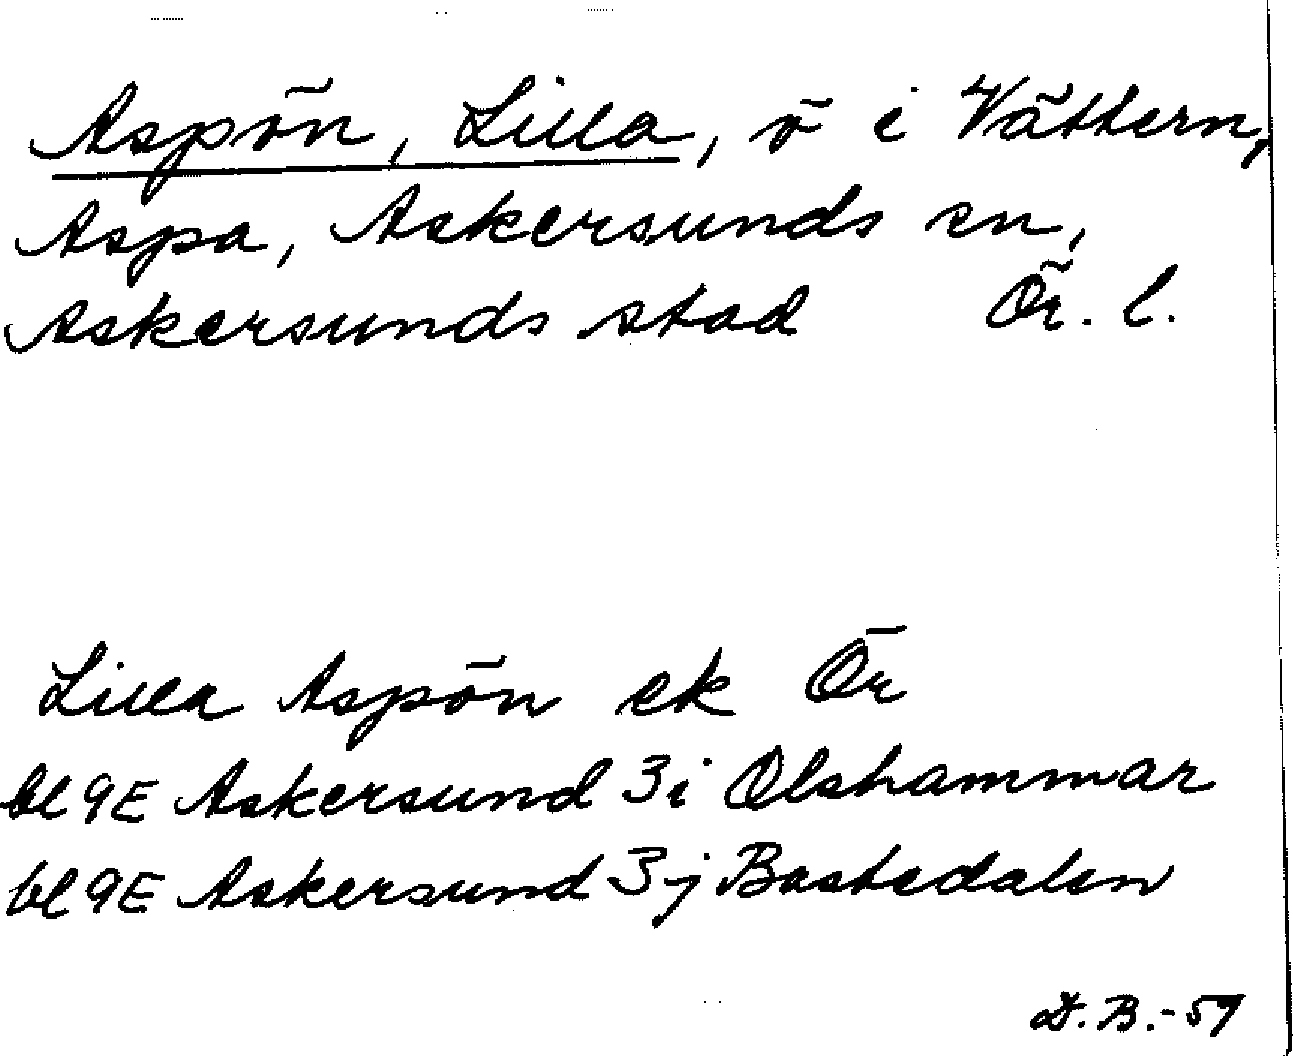 Aspön, Lilla, ö i Vättern,
Aspa, Askersunds sn,
Askersunds stad Ör. l.
Lilla Aspön ek Ör
bl 9E Askersund 3i Olshammar
bl 9E Askersund 3j Bastedalen
D.B.-59